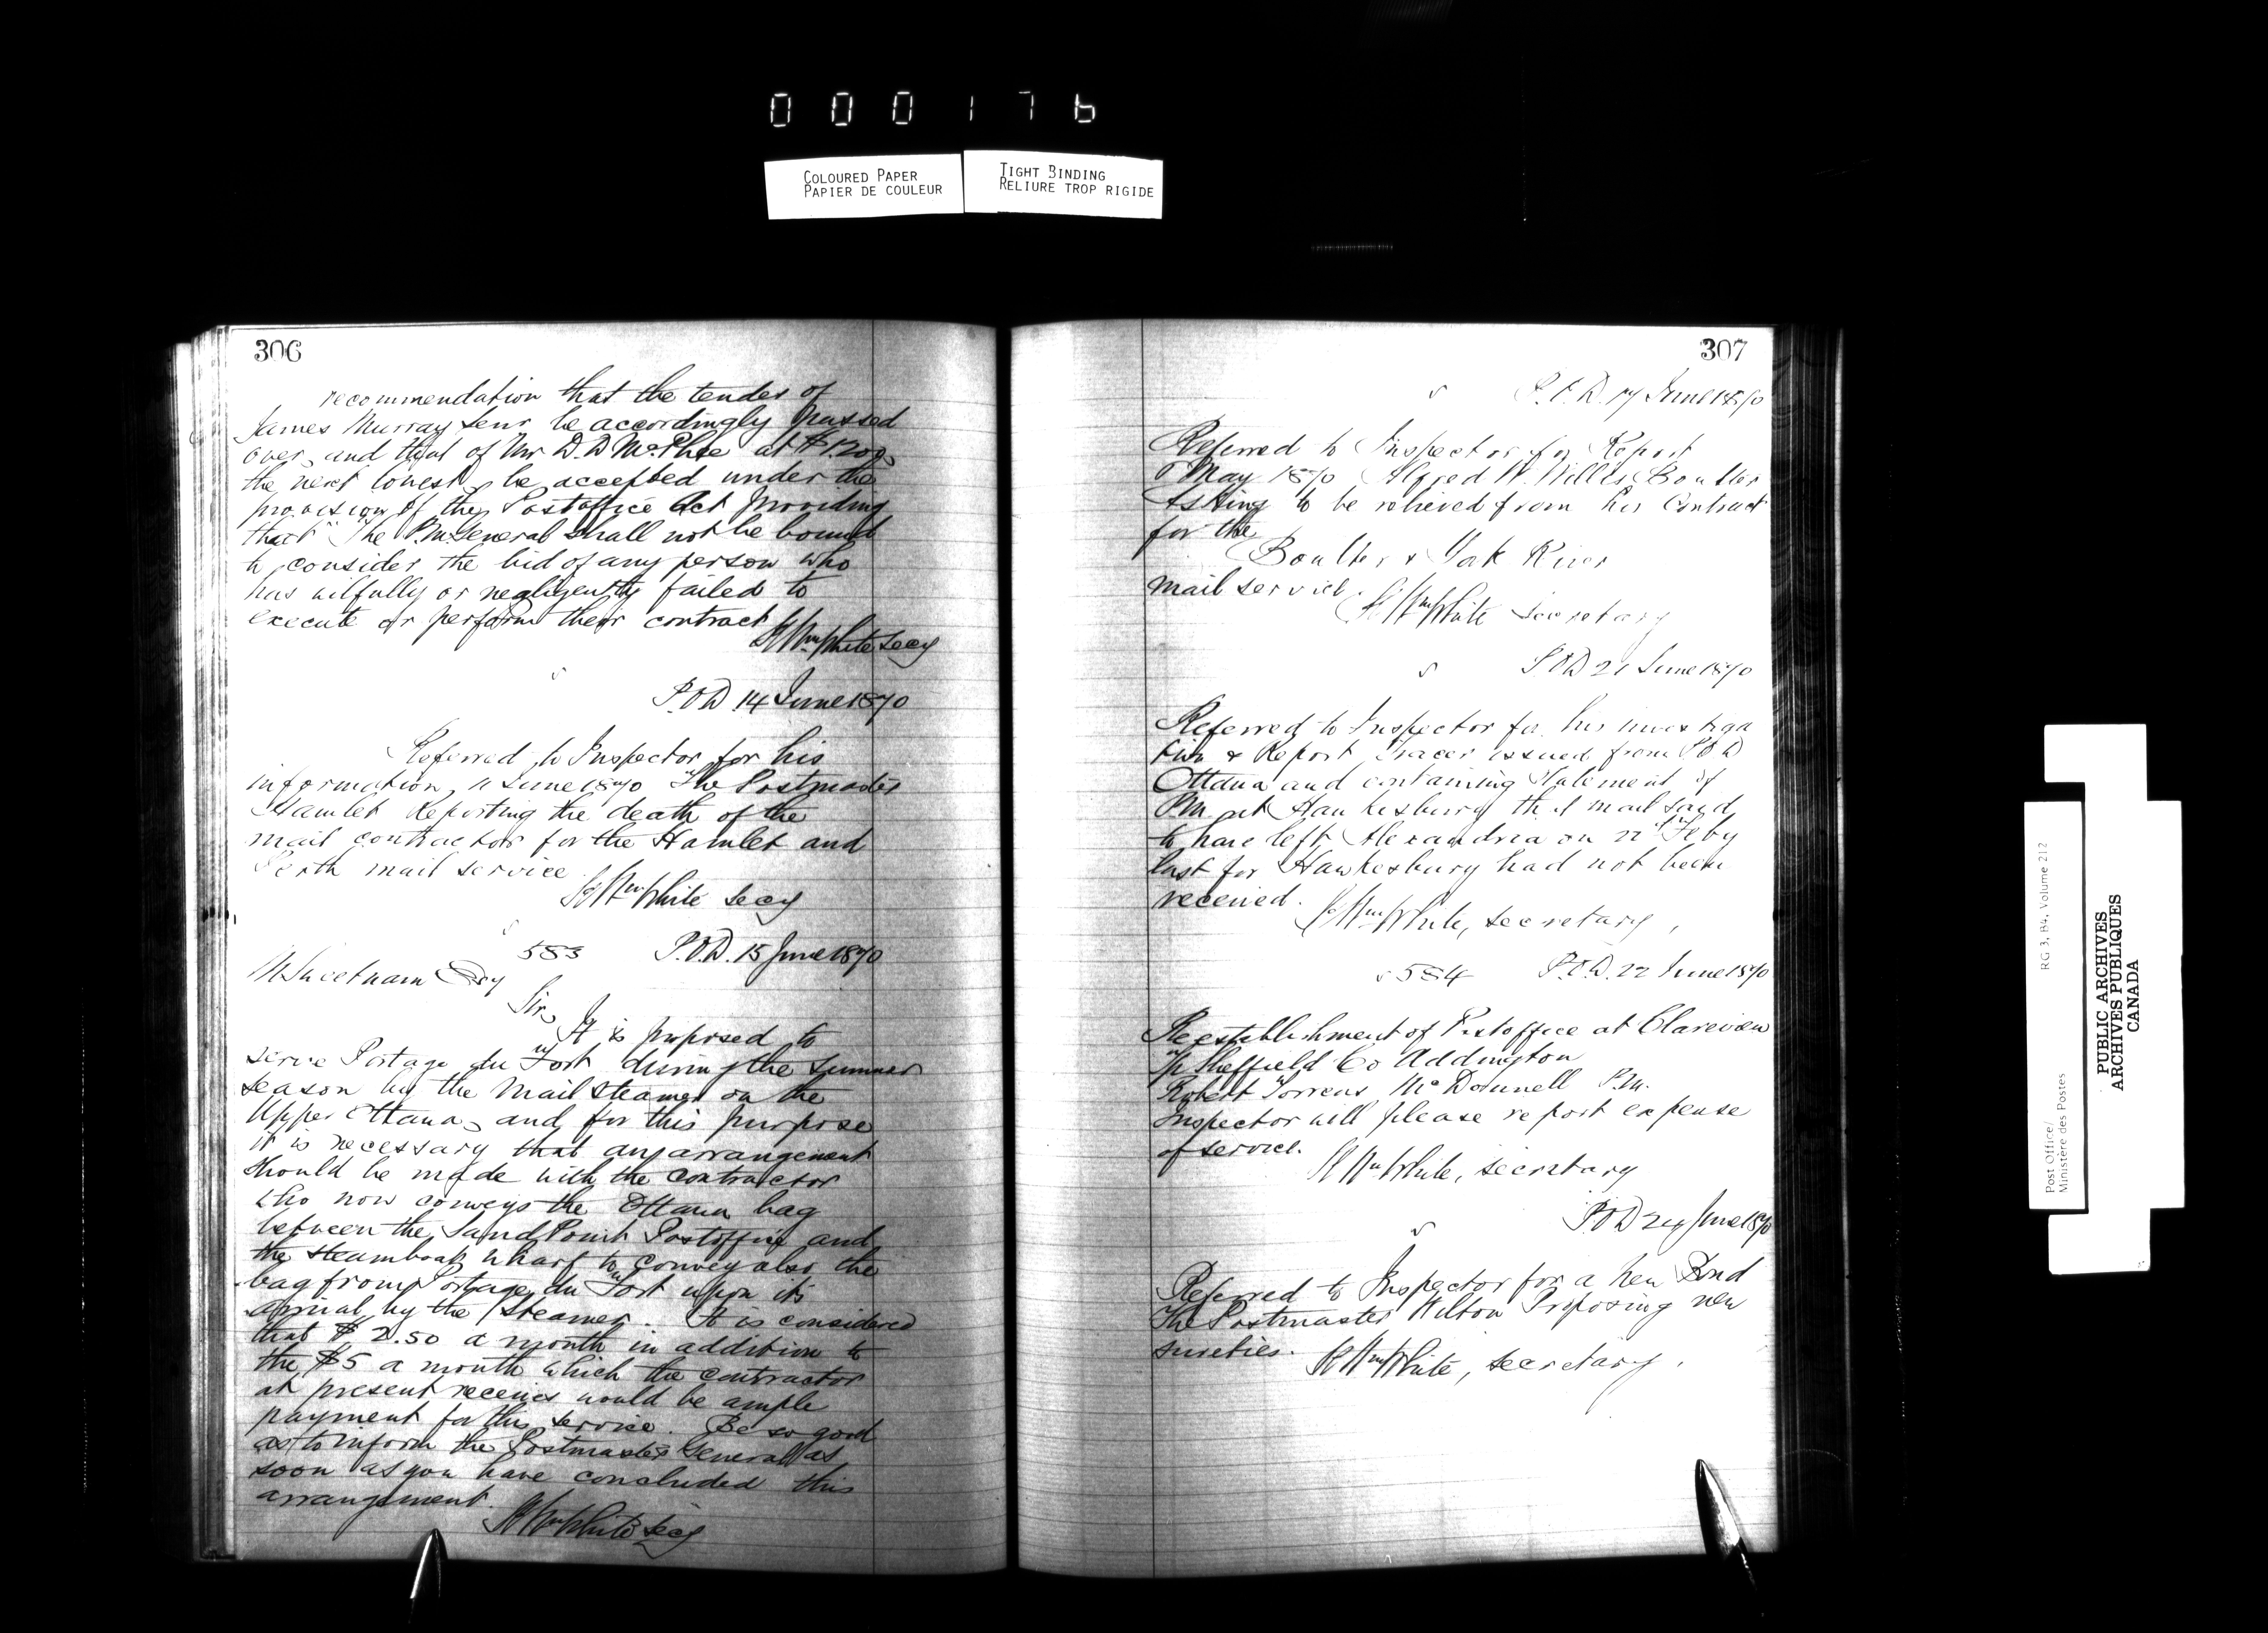 000176
COLOURED PAPER
PAPIER DE COULEUR
TIGHT BINDING
RELIURE TROP RIGIDE
306
recommendation that the tender of
James Murray Senr be accordingly passed
over, and that of Mr D. D McPhee at $1.200,
the next lowest, be accepted under the
provision of the Postoffice Act providing
that "The P.M. General shall not be bound
to consider the bid of any person who
has wilfully or negligently failed to
execute or perform their contract
Wm White Secy
P.O.D 14 June 1870
Referred to Inspector for his
information, 11 June 1870 The Postmaster
Hamlet Reporting the death of the
mail contractor for the Hamlet and
Perth mail service
Wm White Secy
583 P.O.D. 15 June 1870
M Sweetnam Esq
Sir,
It is proposed to
serve Portage du Fort during the summer
season by the Mail Steamer on the
Upper Ottawa, and for this purpose
it is necessary that an arrangement
should be made with the contractor
who now conveys the Ottawa bag
between the Sand Point Postoffice and
the steamboat wharf to convey also the
bag from Portage du Fort upon its
arrival by the Steamer. It is considered
that $2.50 a month in addition to
the $5 a month which the contractor
at present receives would be ample
payment for this service. Be so good
as to inform the Postmaster General as
soon as you have concluded this
arrangement.
Wm White Secy
307
P.O.D. 17 June 1870
Referred to Inspector for Report
May 1870 Alfred W. Willis Boulter
Asking to be relieved from his Contract
for the
Boulter & York River
mail service.
Wm White Secretary
P.O.D 21 June 1870
Referred to Inspector for his investiga
tion & Report Tracer issued from P.O.D
Ottawa and containing Statement of
P.M. at Hawkesbury that mail said
to have left Alexandria on 22 Feby
last for Hawkesbury had not been
received.
Wm White, secretary,
584 P.O.D. 22 June 1870
Reestablishment of Postoffice at Clareview
Tp Sheffield Co Addington
Robert Torrens McDonnell P.M.
Inspector will please report expense
of service.
Wm White, secretary
P.O.D 24 June 1870
Referred to Inspector for a new Bond
The Postmaster Wilton Proposing new
sureties.
Wm White, secretary.
Post Office/
Ministère des Postes
RG 3, B4, Volume 212
PUBLIC ARCHIVES
ARCHIVES PUBLIQUES
CANADA